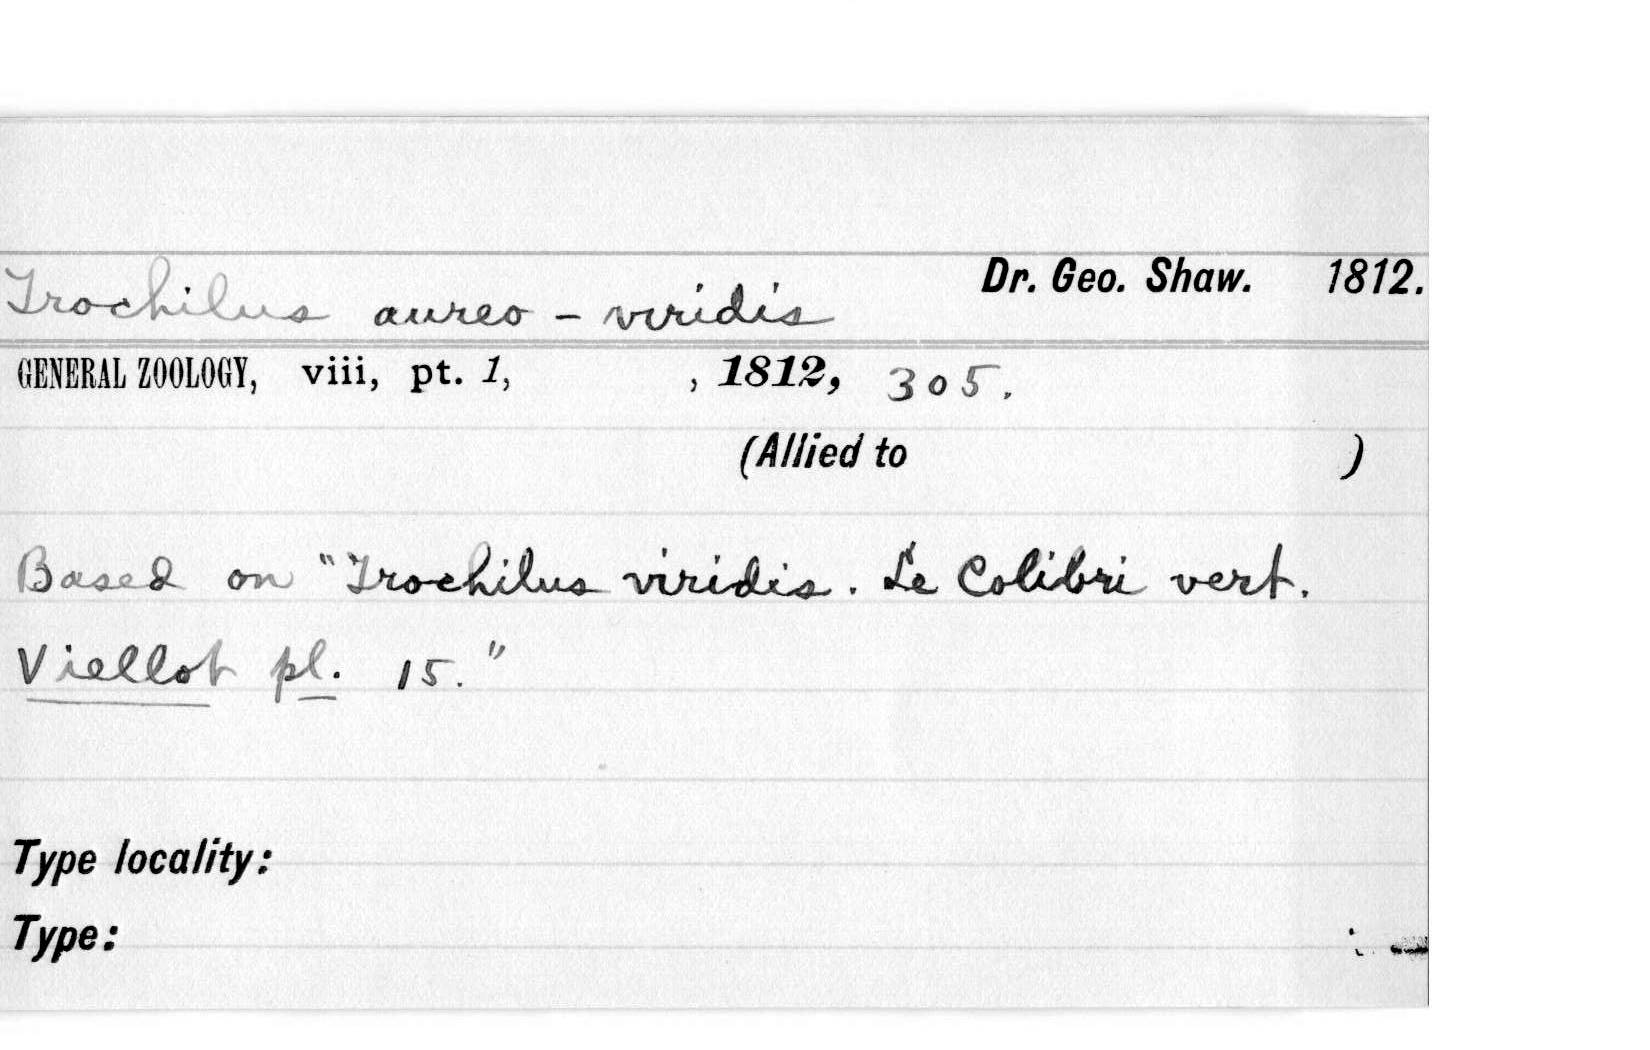 Trochilus aureo-viridis Dr. Geo. Shaw. 1812.
GENERAL ZOOLOGY, viii, pt. 1, , 1812, 305.
(Allied to )
Based on "Trochilus viridis. Le Colibri vert.
Viellot pl. 15."
Type locality:
Type: